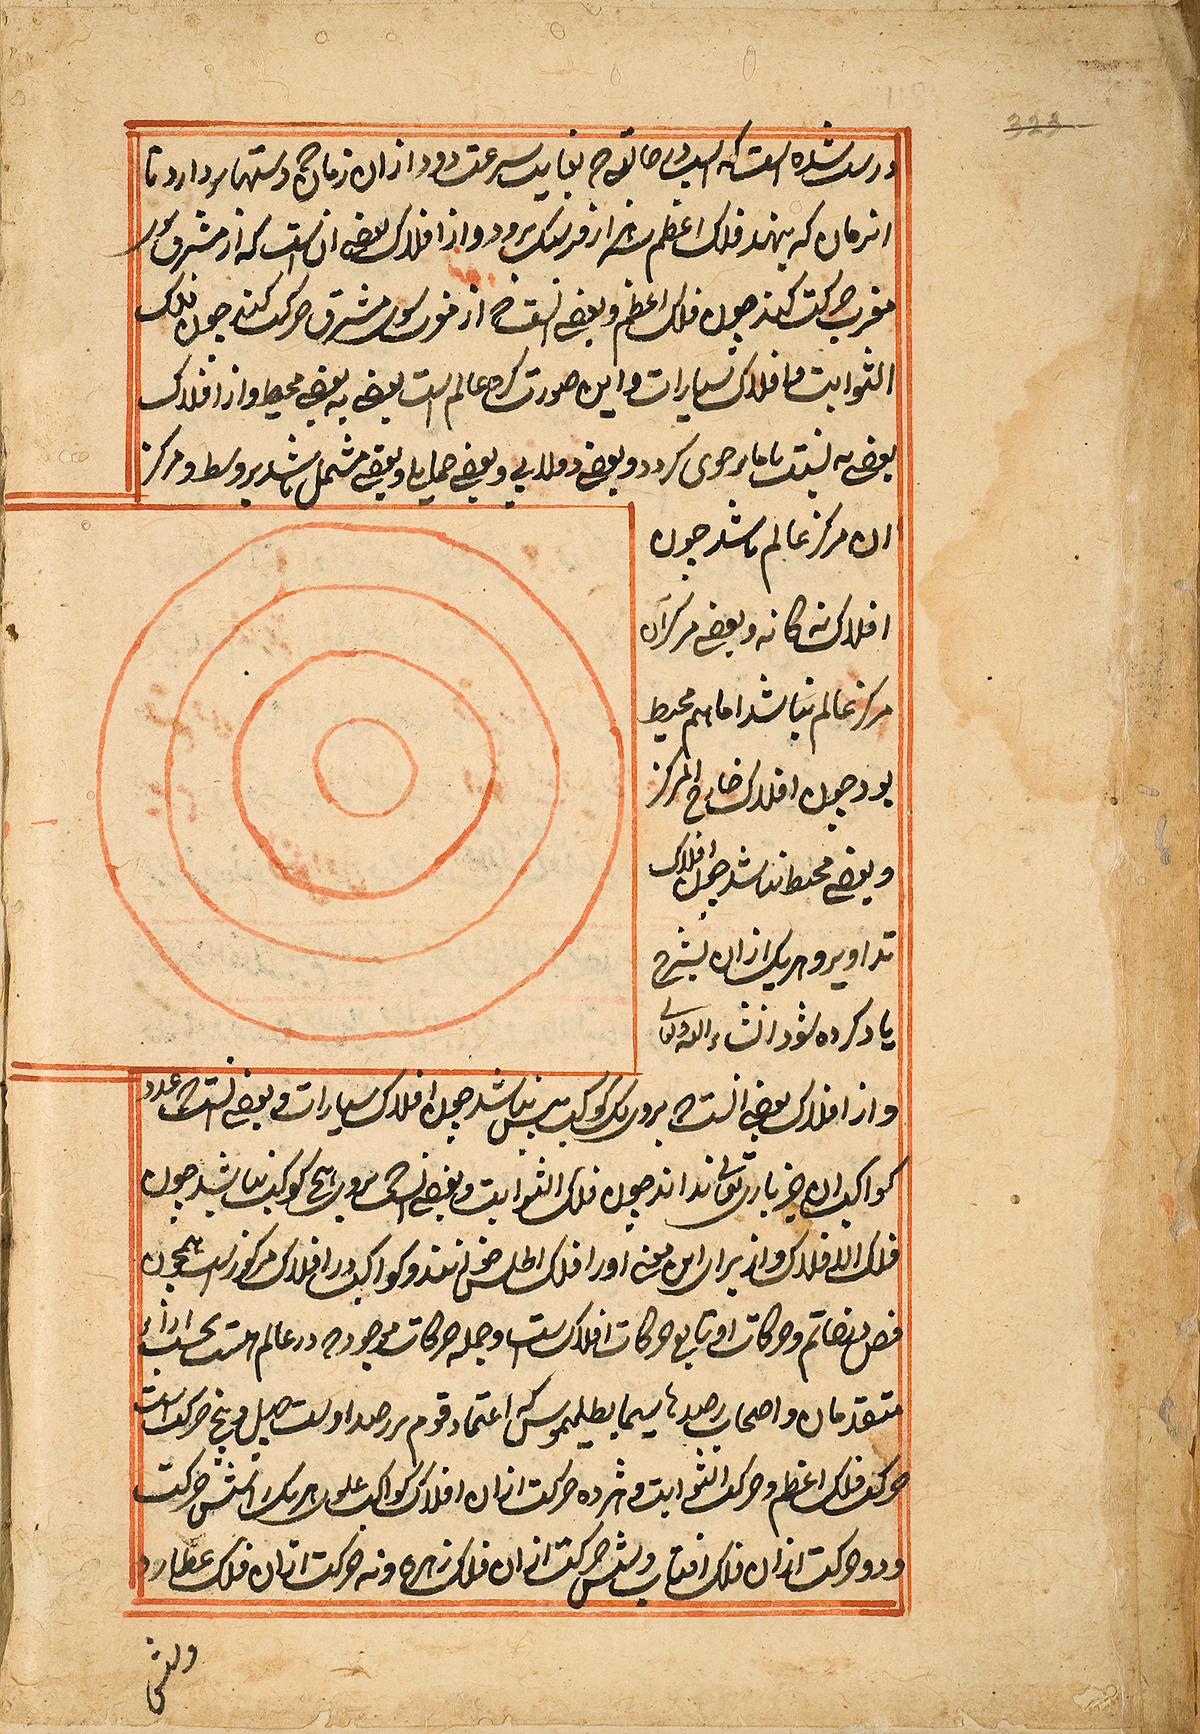 درست شده است که اسب دونده تا بغایت سرعت دود از آن زمان که دستها بردارد تا
انزمان که بنهد فلک اعظم سه هزار فرسنگ برود و از افلاک بعضی انست که از مشرق سوی
مغرب حرکت کند چون فلک اعظم و بعضی انست که از مغرب سوی مشرق حرکت کند چون فلک
الثوابت و افلاک سیارات و این صورت کره عالم است بعضی به بعضی محیط و از افلاک
بعضی به نسبت باما رحوی کردد و بعضی دولابی و بعضی حمایلی و بعضی مشتمل باشد بر وسط و مرکز
ان مرکز عالم باشد چون
افلاک نه کانه و بعضی مرکز آن
مرکز عالم نباشد اما هم محیط
بود چون افلاک خارج المرکز
و بعضی محیط نباشد چون افلاک
تداویر و هریک از ان بشرح
یاد کرده شود انشاء الله تعالی
و از افلاک بعضی انست که بروی یک کوکب بیش نباشد چون افلاک سیارات و بعضی انست که عدد
کواکب ان جز باری تعالی نداند چون فلک الثوابت و بعضی انست که بروی هیچ کوکب نباشد چون
فلک الافلاک و از برای این معنی او را فلک اطلس خوانند و کواکب در افلاک مرکوز است همچون
فص در خاتم و حرکات او تابع حرکات افلاک است و جمله حرکات موجوده در عالم هست بحسب ارآء
متقدمان و اصحاب رصدها سیما بطلیموس که اعتماد قوم بر رصد اوست چهل و پنج حرکت است
حرکت فلک اعظم و حرکت الثوابت و هژده حرکت از ان افلاک کواکب علوی هریک را شش حرکت
و دو حرکت از ان فلک افتاب و شش حرکت از ان فلک زهره و نه حرکت از ان فلک عطارد
وشش